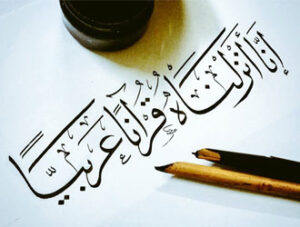 إنا أنزلناه قرآنا عربيا